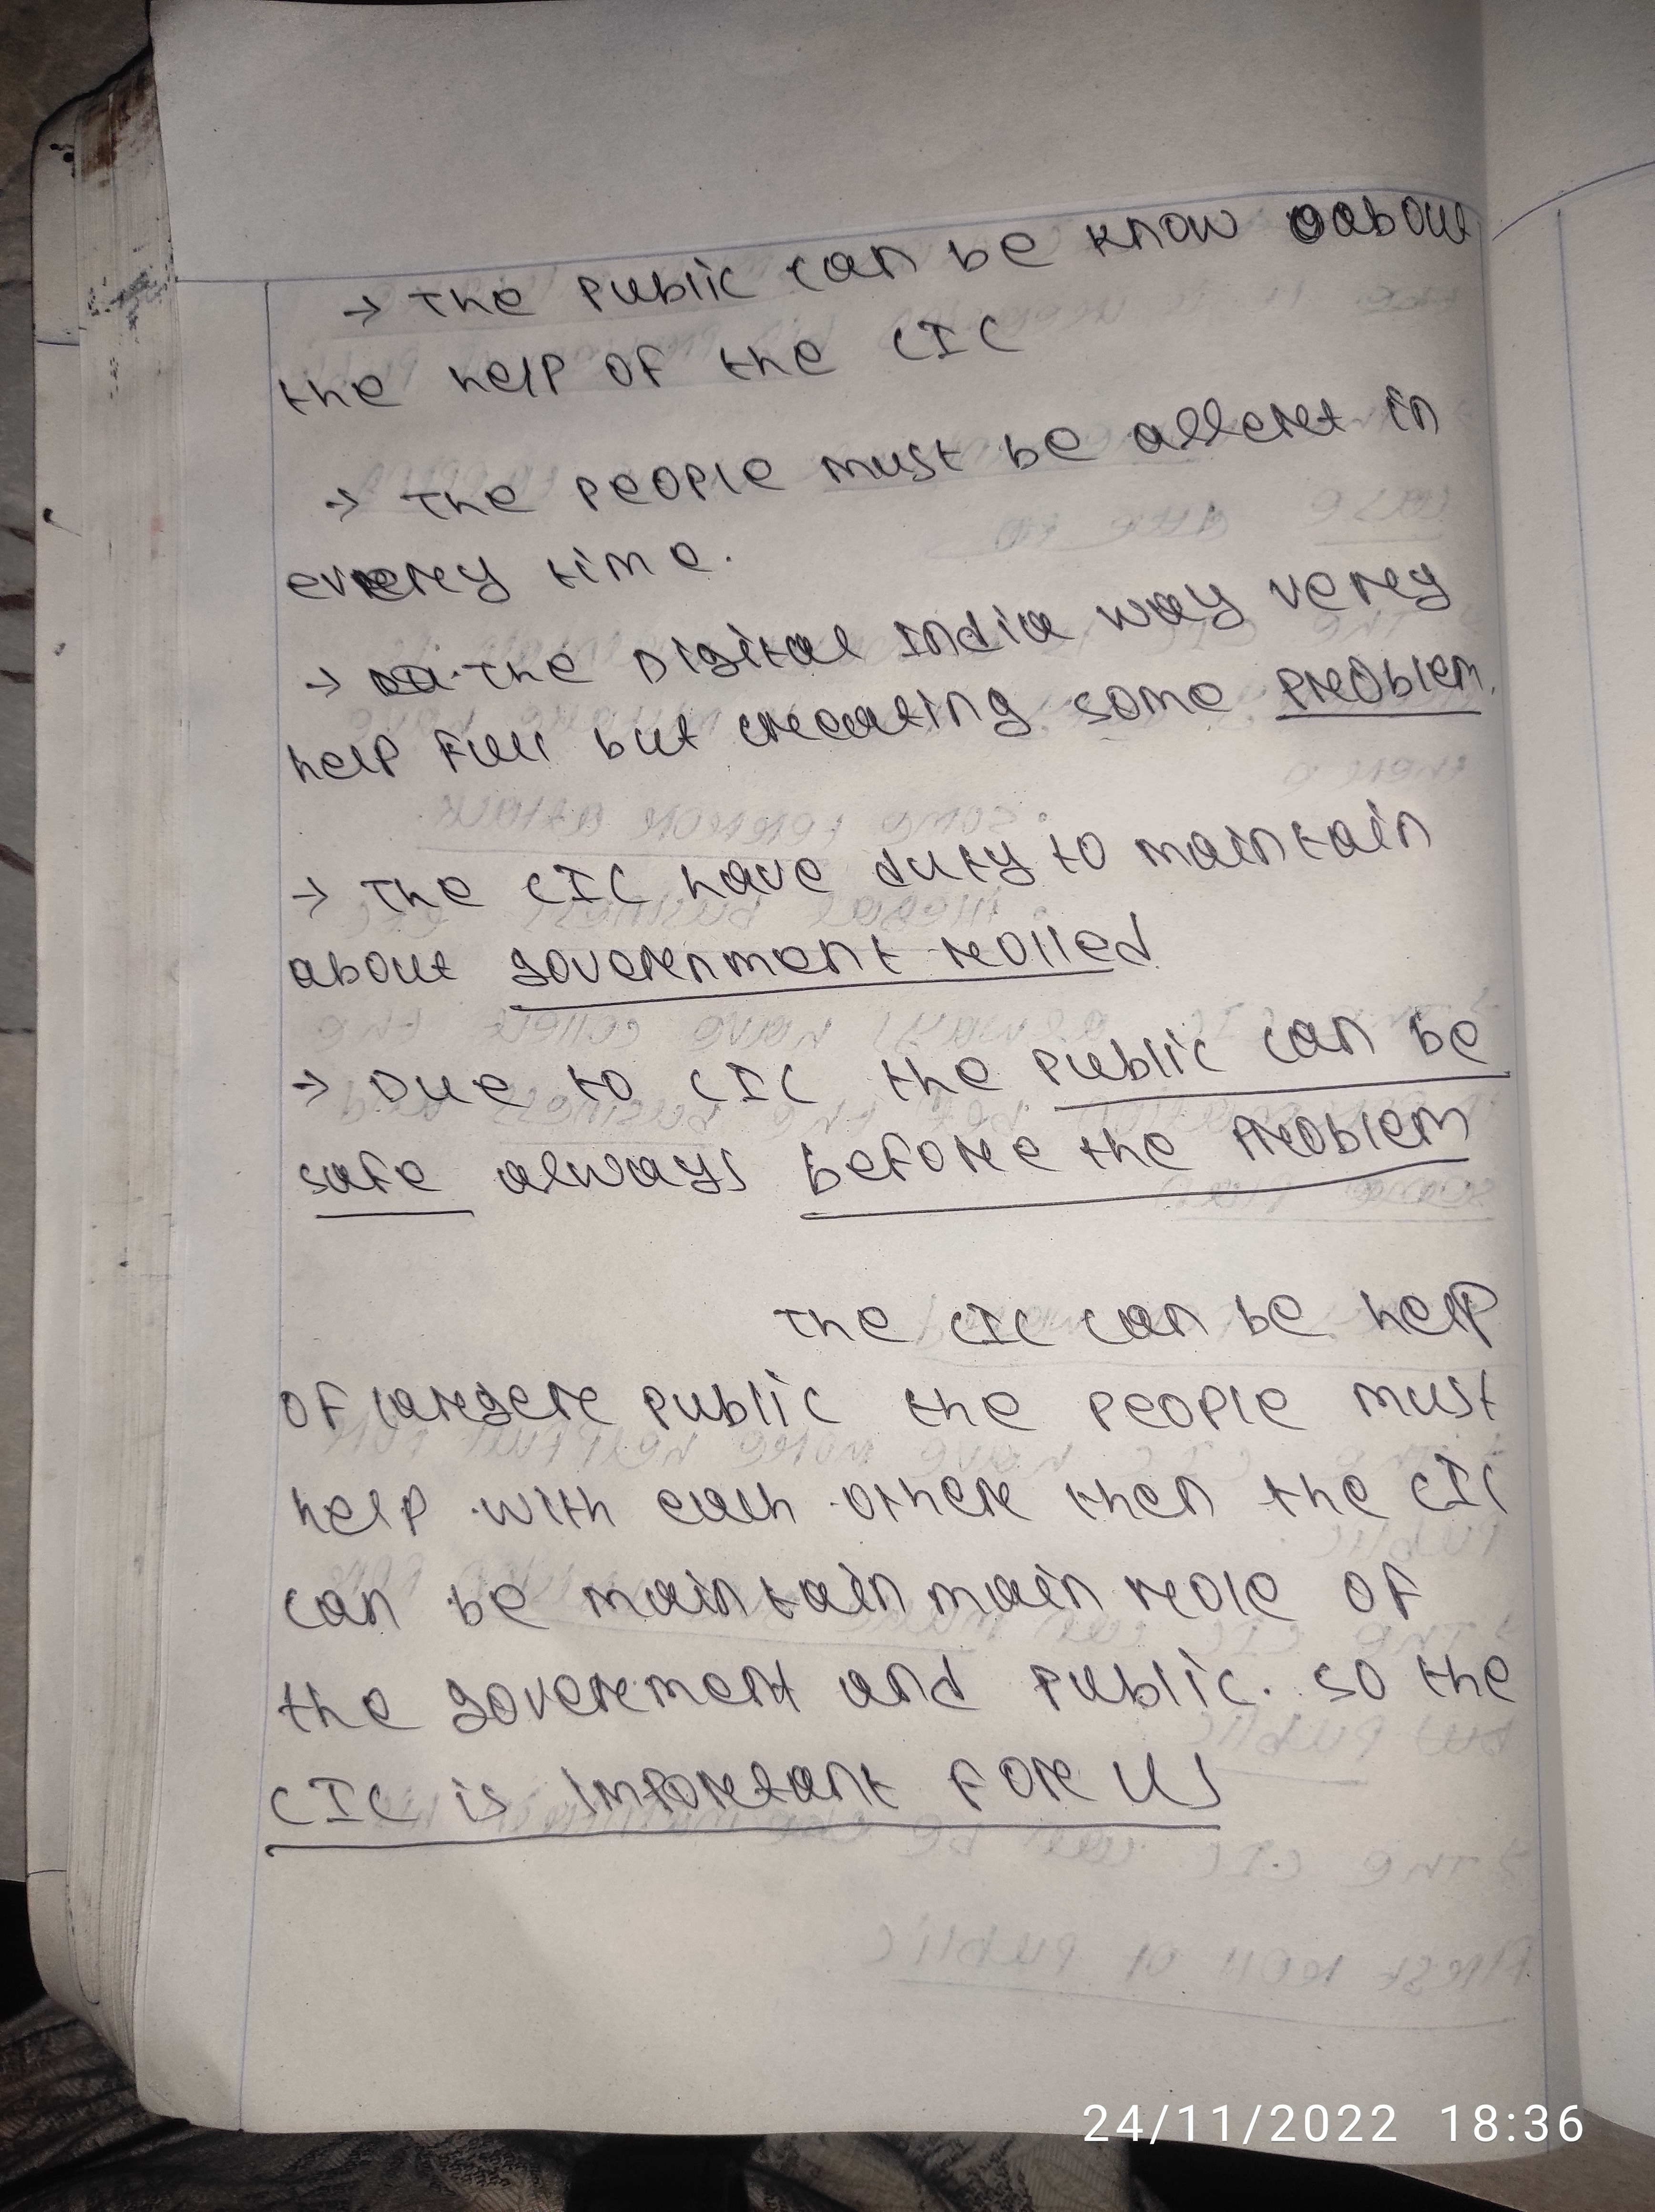 → The public can be know about
the help of the CIC
→ The people must be allert in
every time.
→ The Digital India way very
help full but creating some problem.
→ The CIC have duty to maintain
about government rolled
→ Due to CIC the public can be
safe always before the problem
The CIC can be help
of larger public the people must
help with each other then the CIC
can be maintain main role of
the goverment and public. so the
CIC is important for us
24/11/2022 18:36